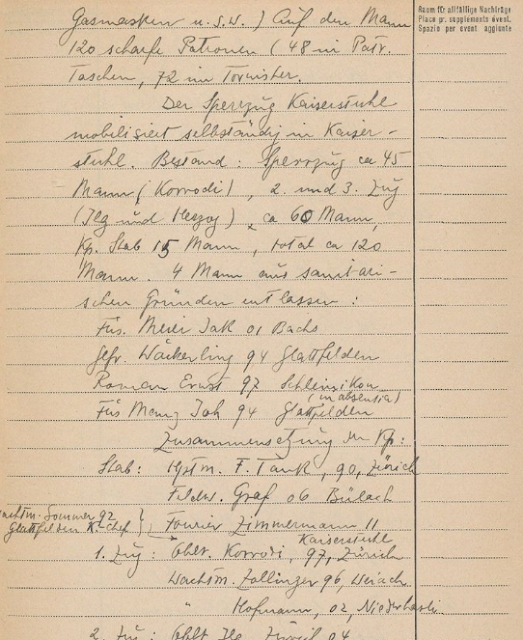 Gasmasken u.s.w.) Auf den Mann
Raum für allfällige Nachträge
Place pr. suppléments évent.
Spazio per event. aggiunte
120 scharfe Patronen (48 in Patr.
Taschen, 72 im Tornister.
Der Sperrzug Kaiserstuhl
mobilisiert selbständig in Kaiser-
stuhl. Bestand: Sperrzug ca 45
Mann (Korrodi), 2. und 3. Zug
(Ilg und Herzog) ca 60 Mann,
Kp. Stab 15 Mann, total ca 120
Mann. 4 Mann aus sanitari-
schen Gründen entlassen:
Füs. Meier Jak 01 Bachs
Gefr. Wäckerling 94 Glattfelden
Roman Ernst 97 Schleinikon
(in absentia)
Füs Menz Joh 94 Glattfelden
Zusammensetzung der Kp:
Stab: Hptm. F. Tank, 90, Zürich
Feldw. Graf 06 Bülach
Wachtm. Sommer 92
Glattfelden K'chef
Fourier Zimmermann 11
Kaiserstuhl
1. Zug: Oblt. Korrodi, 97, Zürich
Wachtm. Zollinger 96, Weiach
" Hofmann, 02, Niederhasli
2. Zug: Oblt Ilg Zürich 04